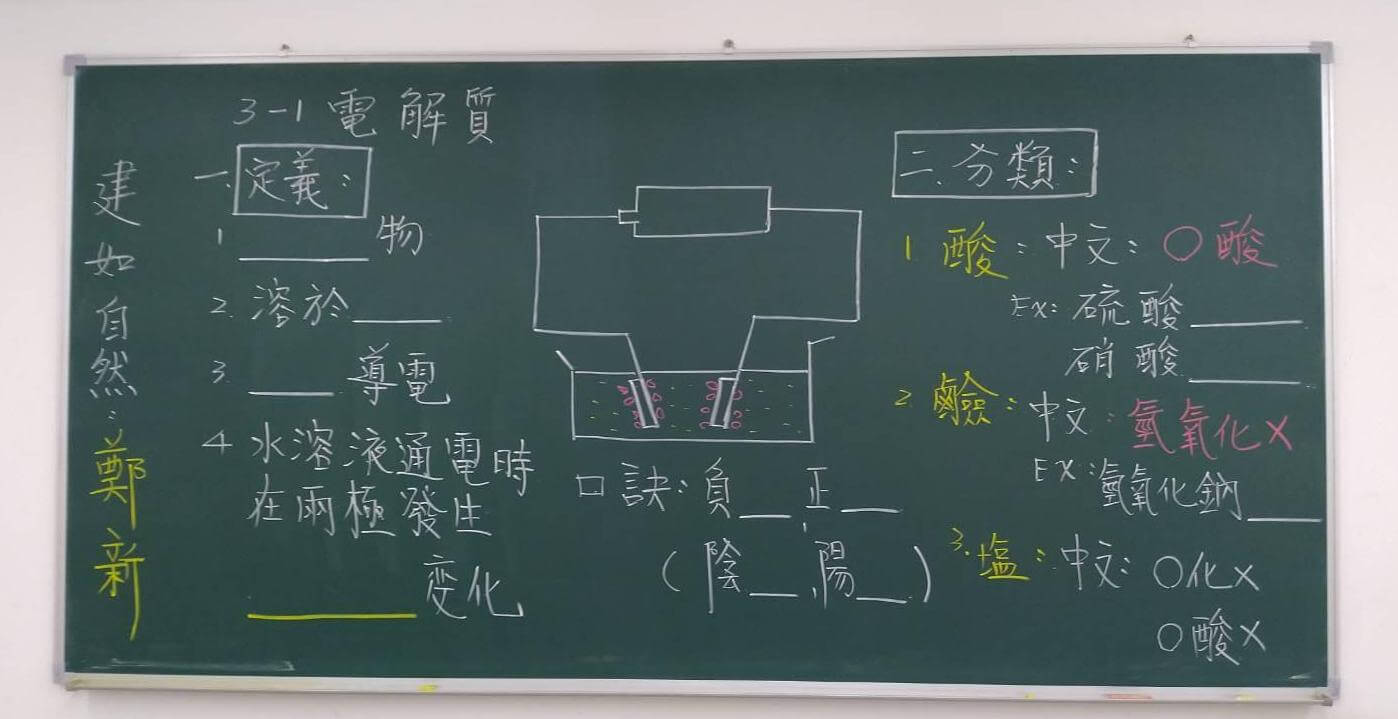 建如自然：鄭新
3-1 電解質
一. 定義：
1 ______物
2. 溶於____
3 ____導電
4 水溶液通電時
在兩極發生
________变化
口訣：負__,正__
(陰__,陽__)
二.分類：
1 酸：中文：○酸
Ex：硫酸____
硝酸____
2. 鹼：中文：氫氧化X
EX：氫氧化鈉____
3. 塩：中文：○化X
○酸X